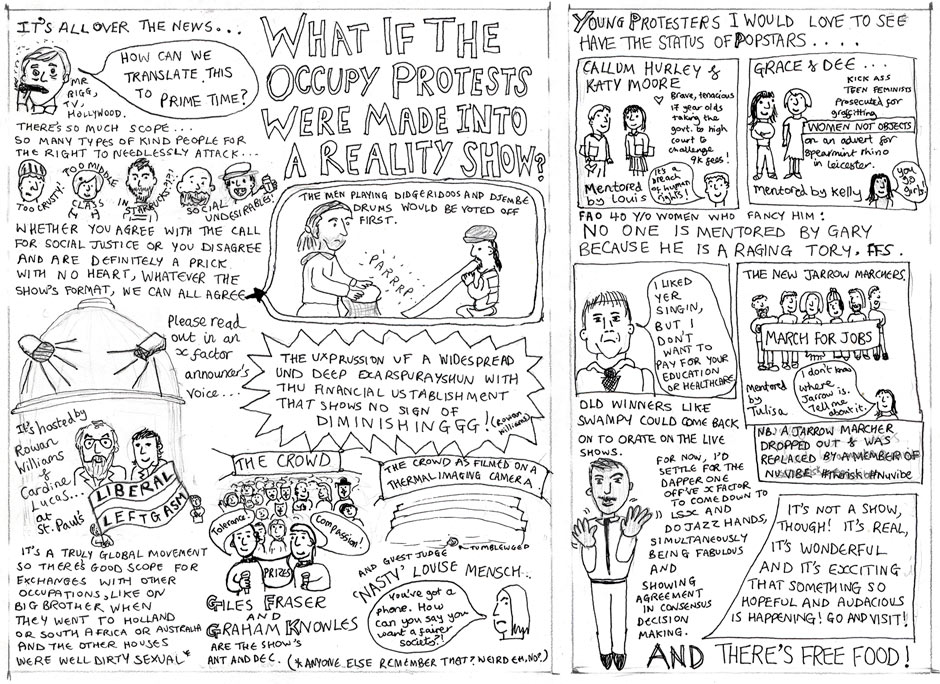 IT'S ALL OVER THE NEWS...
HOW CAN WE
TRANSLATE THIS
TO PRIME TIME?
MR
RIGG,
TV,
HOLLYWOOD.
THERE'S SO MUCH SCOPE...
SO MANY TYPES OF KIND PEOPLE FOR
THE RIGHT TO NEEDLESSLY ATTACK...
TOO CRUSTY!
TOO MIDDLE
CLASS!
IN
STARBUCKS?!?!
SOCIAL
UNDESIRABLE!
WHETHER YOU AGREE WITH THE CALL
FOR SOCIAL JUSTICE OR YOU DISAGREE
AND ARE DEFINITELY A PRICK
WITH NO HEART, WHATEVER THE
SHOW'S FORMAT, WE CAN ALL AGREE
WHAT IF THE
OCCUPY PROTESTS
WERE MADE INTO
A REALITY SHOW?
THE MEN PLAYING DIDGERIDOOS AND DJEMBE
DRUMS WOULD BE VOTED OFF
FIRST.
PARRRP
Please read
out in an
x factor
announcer's
voice...
THE UXPRUSSION UF A WIDESPREAD
UND DEEP EXARSPURAYSHUN WITH
THU FINANCIAL USTABLISHMENT
THAT SHOWS NO SIGN OF
DIMINISHINGGG!
(Rowan
Williams)
It's hosted by
Rowan
Williams
&
Caroline
Lucas...
at
St. Paul's
LIBERAL
LEFTGASM
IT'S A TRULY GLOBAL MOVEMENT
SO THERE'S GOOD SCOPE FOR
EXCHANGES WITH OTHER
OCCUPATIONS, LIKE ON
BIG BROTHER WHEN
THEY WENT TO HOLLAND
OR SOUTH AFRICA OR AUSTRALIA
AND THE OTHER HOUSES
WERE WELL DIRTY SEXUAL*
THE CROWD
Tolerance!
Compassion!
PRIZES
GILES FRASER
AND
GRAHAM KNOWLES
ARE THE SHOW'S
ANT AND DEC.
(*ANYONE ELSE REMEMBER THAT? WEIRD EH, NO?)
THE CROWD AS FILMED ON A
THERMAL IMAGING CAMERA
TUMBLEWEED
AND GUEST JUDGE
'NASTY' LOUISE MENSCH...
You've got a
phone. How
can you say you
want a fairer
society?!
YOUNG PROTESTERS I WOULD LOVE TO SEE
HAVE THE STATUS OF POPSTARS.....
CALLUM HURLEY &
KATY MOORE
Brave, tenacious
17 year olds
taking the
govt. to high
court to
challenge
9k fees!
It's a
breach of human
rights!
Mentored
by Louis
GRACE & DEE...
KICK ASS
TEEN FEMINISTS
Prosecuted for
graffitting
WOMEN NOT OBJECTS
on an advert for
spearmint rhino
in Leicester.
You
go
girls!
Mentored by Kelly
FAO 40 Y/O WOMEN WHO FANCY HIM:
NO ONE IS MENTORED BY GARY
BECAUSE HE IS A RAGING TORY. FFS.
I LIKED
YER
SINGIN,
BUT I
DON'T
WANT TO
PAY FOR YOUR
EDUCATION
OR HEALTHCARE
THE NEW JARROW MARCHERS
MARCH FOR JOBS
Mentored
by
Tulisa
I don't know
where
Jarrow is.
Tell me
about it.
NB. A JARROW MARCHER
DROPPED OUT & WAS
REPLACED BY A MEMBER OF
NUVIBE #therisk #Nuvibe
OLD WINNERS LIKE
SWAMPY COULD COME BACK
ON TO ORATE ON THE LIVE
SHOWS.
FOR NOW, I'D
SETTLE FOR THE
DAPPER ONE
OFF'VE X FACTOR
TO COME DOWN TO
LSX AND
DO JAZZ HANDS,
SIMULTANEOUSLY
BEING FABULOUS
AND
SHOWING
AGREEMENT
IN CONSENSUS
DECISION
MAKING.
IT'S NOT A SHOW,
THOUGH! IT'S REAL,
IT'S WONDERFUL
AND IT'S EXCITING
THAT SOMETHING SO
HOPEFUL AND AUDACIOUS
IS HAPPENING! GO AND VISIT!
AND THERE'S FREE FOOD!